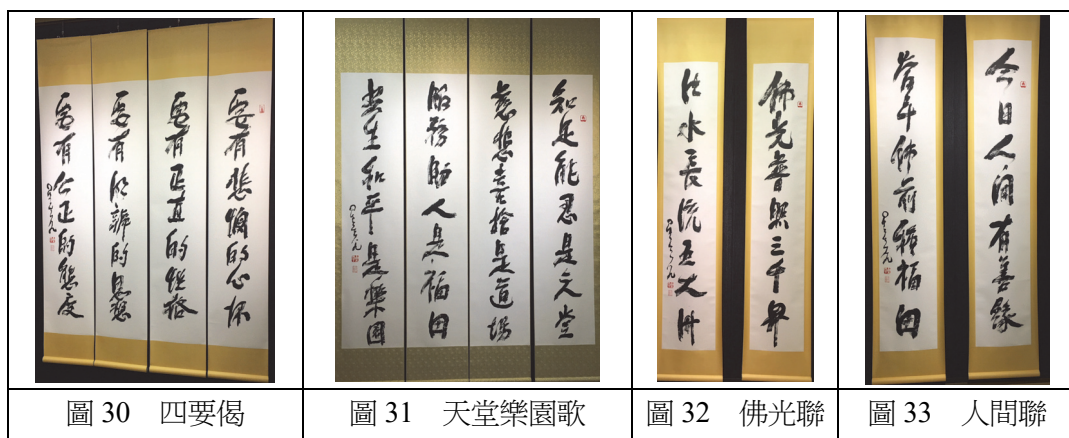 要有悲憫的心懷
要有正直的性格
要有明辨的思想
要有公正的態度
星雲
知足能忍是天堂
慈悲喜捨是道場
服務助人是福田
眾生和平是樂園
星雲
佛光普照三千界
法水長流五大洲
星雲
今日人間有善緣
昔年佛前種福田
星雲
圖 30　四要偈
圖 31　天堂樂園歌
圖 32　佛光聯
圖 33　人間聯